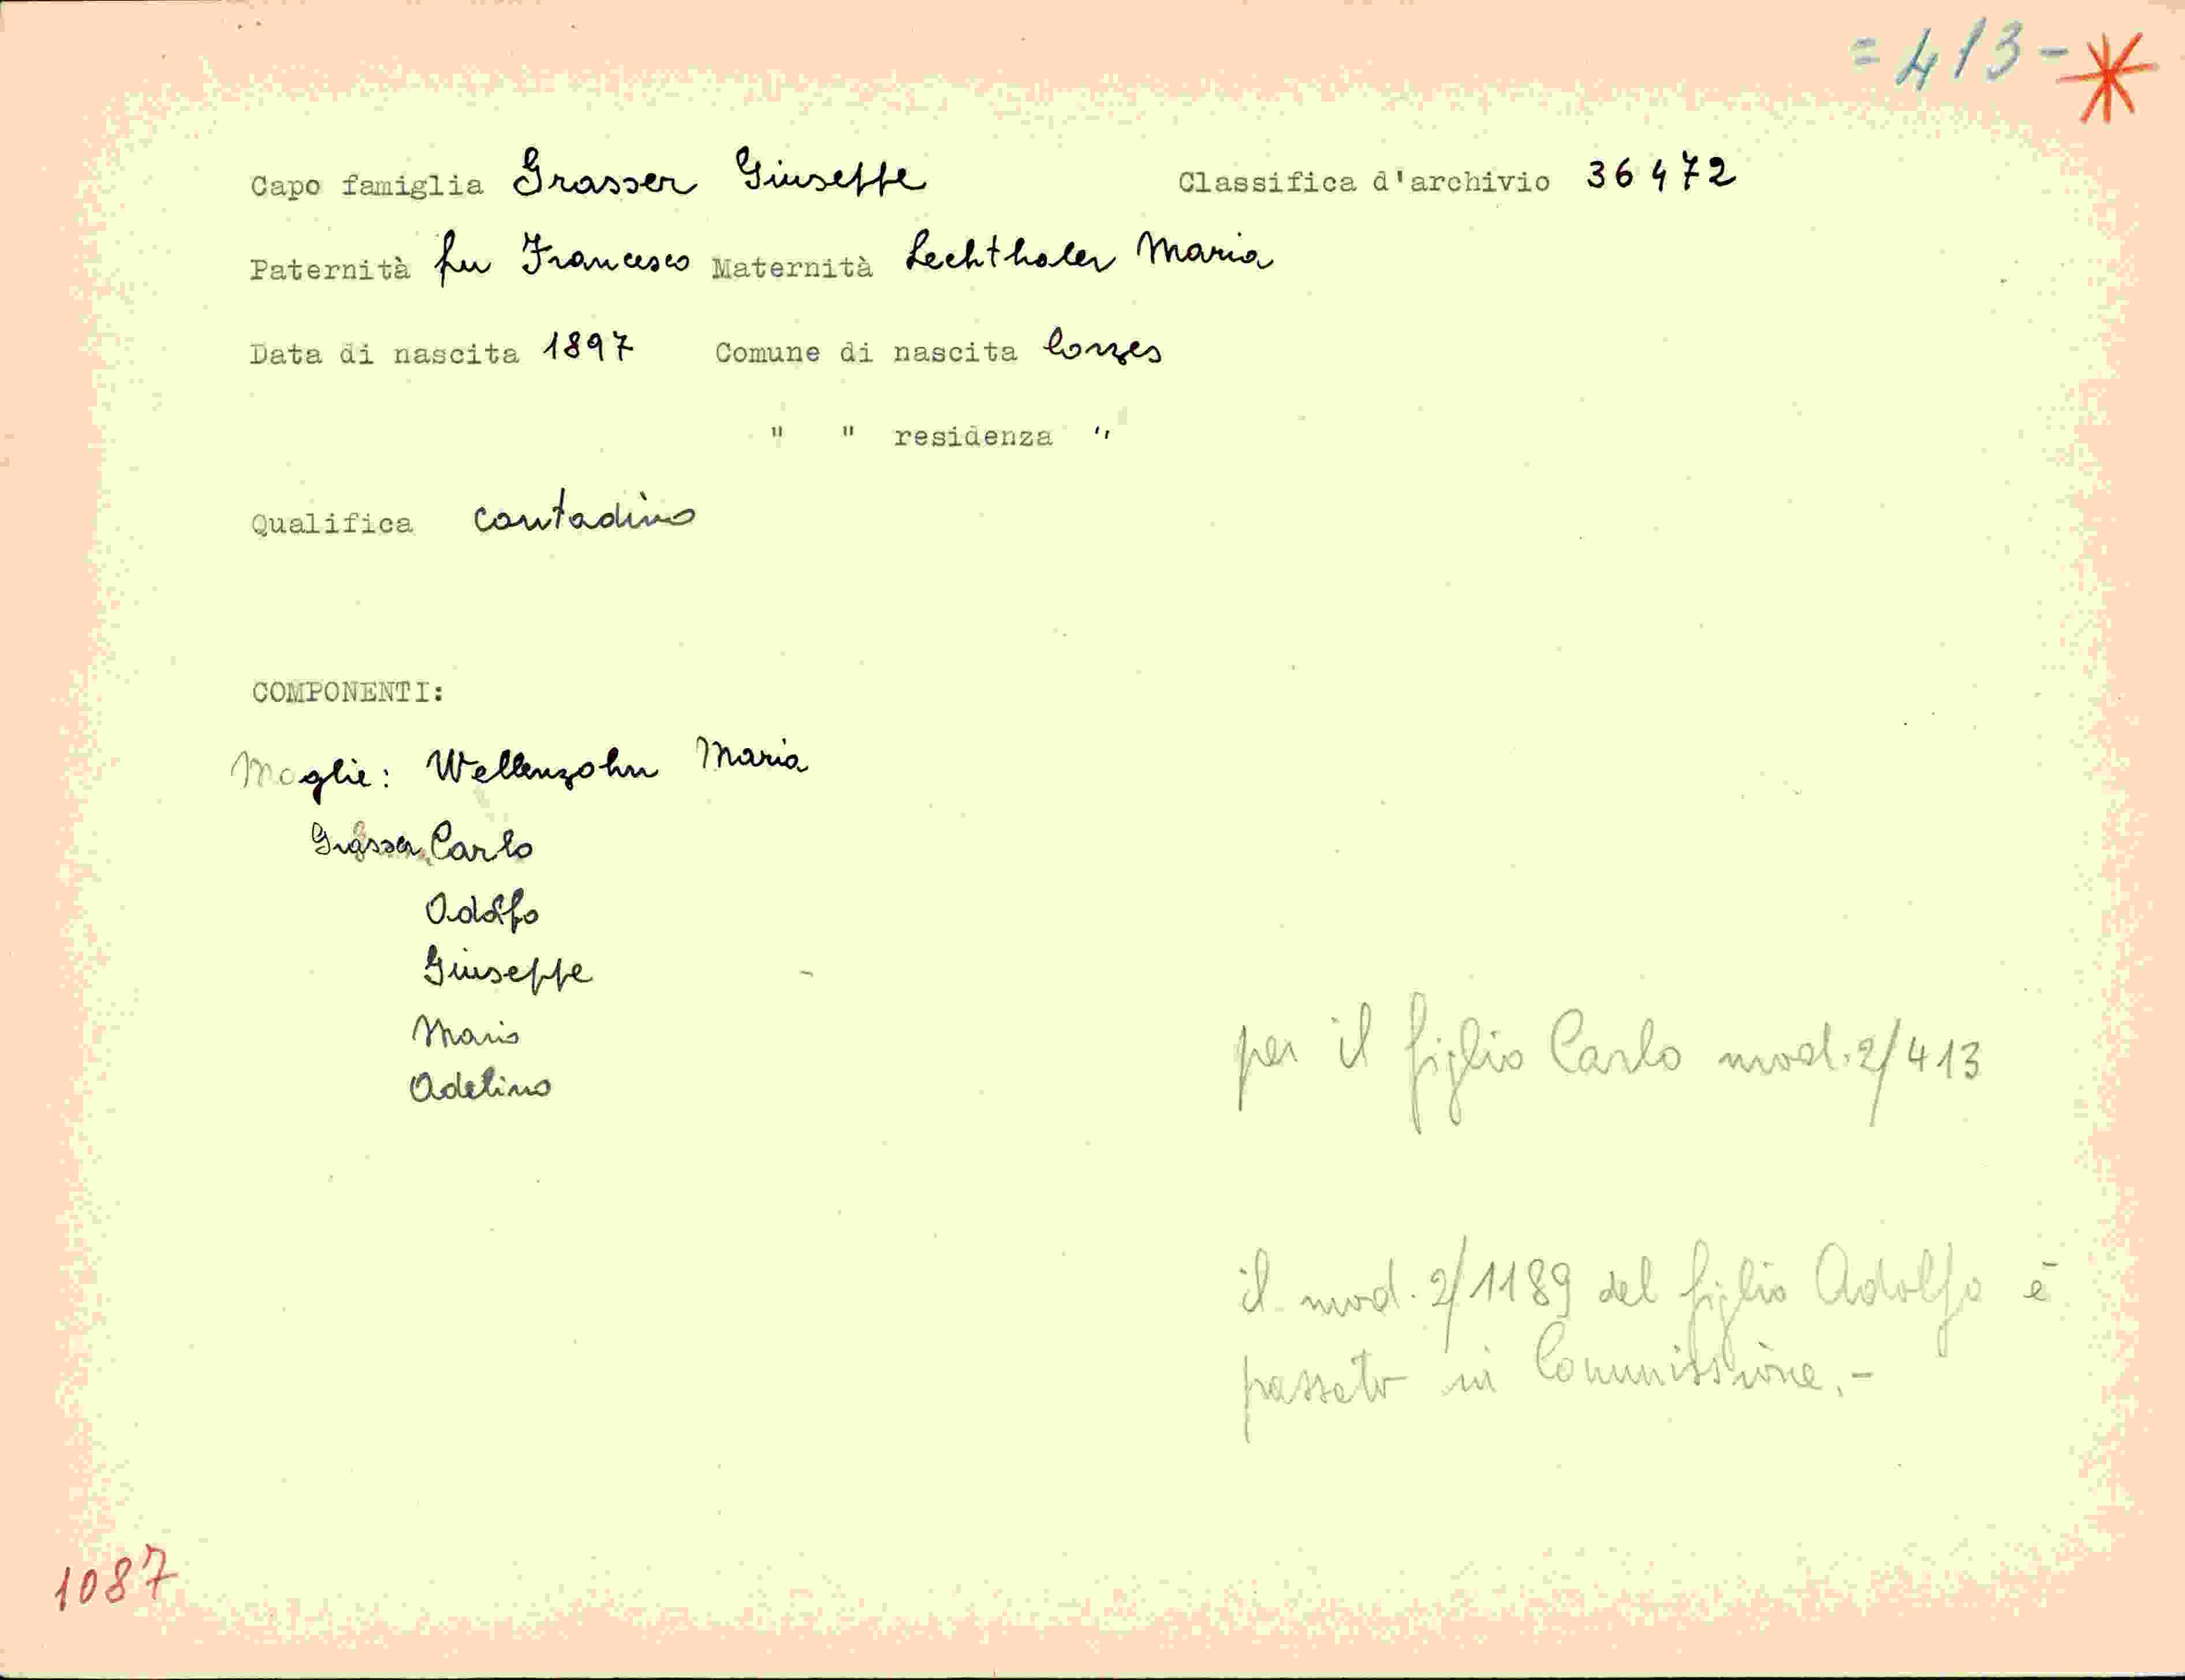 = 413 - *
Capo famiglia Grasser Giuseppe Classifica d'archivio 36472
Paternità fu Francesco Maternità Lechthaler Maria
Data di nascita 1897 Comune di nascita Corzes
" " residenza "
Qualifica contadino
COMPONENTI:
Moglie: Wellenzohn Maria
Grasser Carlo
Adolfo
Giuseppe
Mario
Adelino
per il figlio Carlo mod. 2/413
il mod. 2/1189 del figlio Adolfo è
passato in Commissione.-
1087